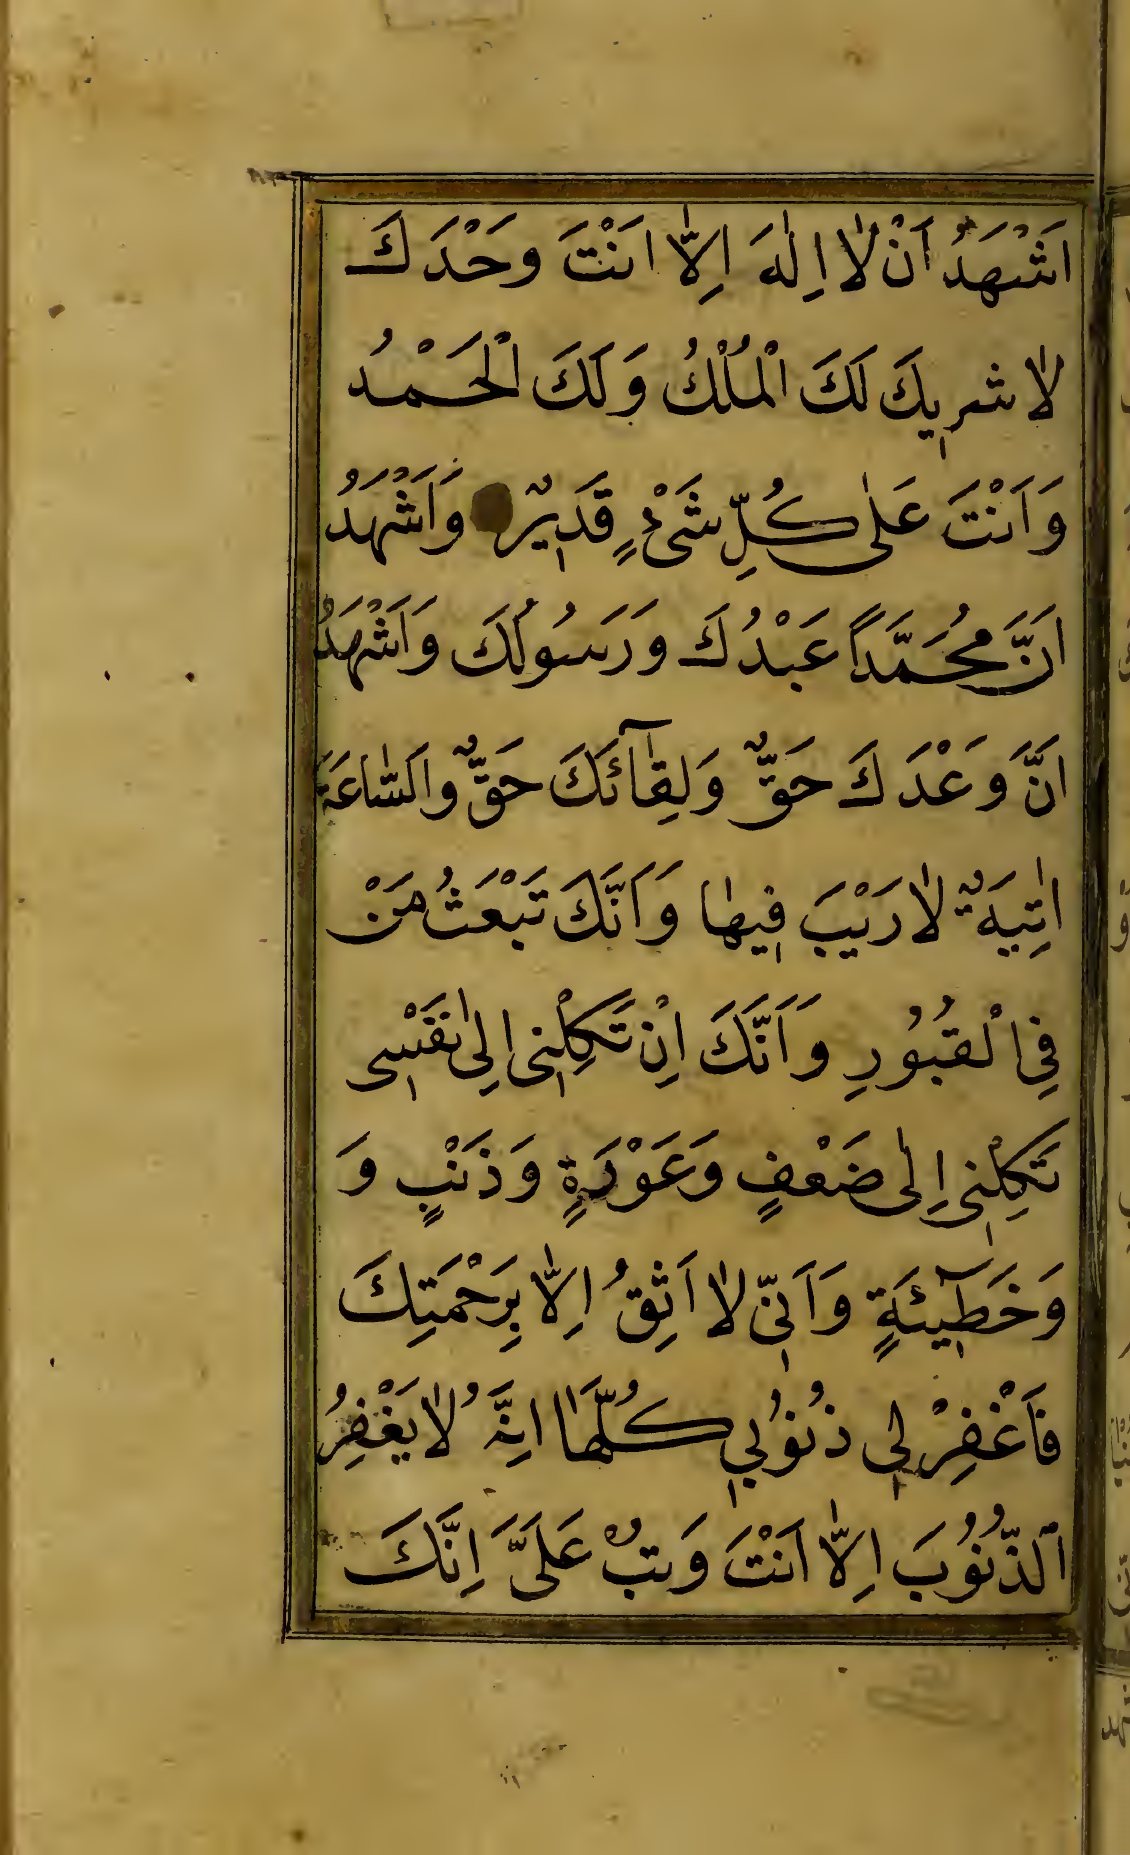 اَشْهَدُ اَنْ لٰا اِلٰهَ اِلّٰا اَنْتَ وَحْدَكَ
لٰا شَرِيكَ لَكَ الْمُلْكُ وَلَكَ الْحَمْدُ
وَاَنْتَ عَلٰى كُلِّ شَىْءٍ قَدِيرٌ وَاَشْهَدُ
اَنَّ مُحَمَّداً عَبْدُكَ وَرَسُولُكَ وَاَشْهَدُ
اَنَّ وَعْدَكَ حَقٌّ وَلِقٰآئَكَ حَقٌّ وَالسّٰاعَةَ
اٰتِيَةٌ لٰا رَيْبَ فِيهٰا وَاَنَّكَ تَبْعَثُ مَنْ
فِى الْقُبُورِ وَاَنَّكَ اِنْ تَكِلْنِى اِلٰى نَفْسِى
تَكِلْنِى اِلٰى ضَعْفٍ وَعَوْرَةٍ وَذَنْبٍ وَ
وَخَطِيٓئَةٍ وَاَنِّى لٰا اَثِقُ اِلّٰا بِرَحْمَتِكَ
فَاغْفِرْ لِى ذُنُوبِي كُلَّهٰا اِنَّهُ لٰا يَغْفِرُ
الذُّنُوبَ اِلّٰا اَنْتَ وَتُبْ عَلَىَّ اِنَّكَ